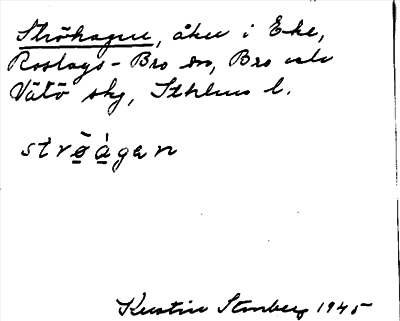 Ströhagen, åker i Eke,
Roslags-Bro sn, Bro och
Vätö skg, Sthlms l.
strø̄̀àgan
Kerstin Stenberg 1945